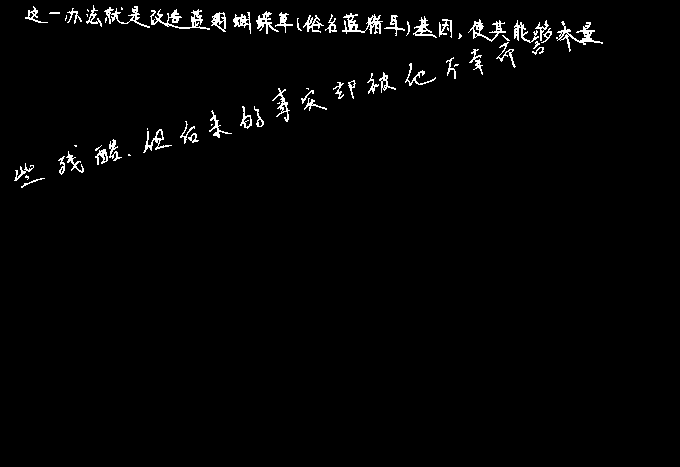 这一办法就是改造蓝翅蝴蝶草(俗名蓝猪耳)基因,使其能够大量
些残酷.但后来的事实却被他不幸而言中